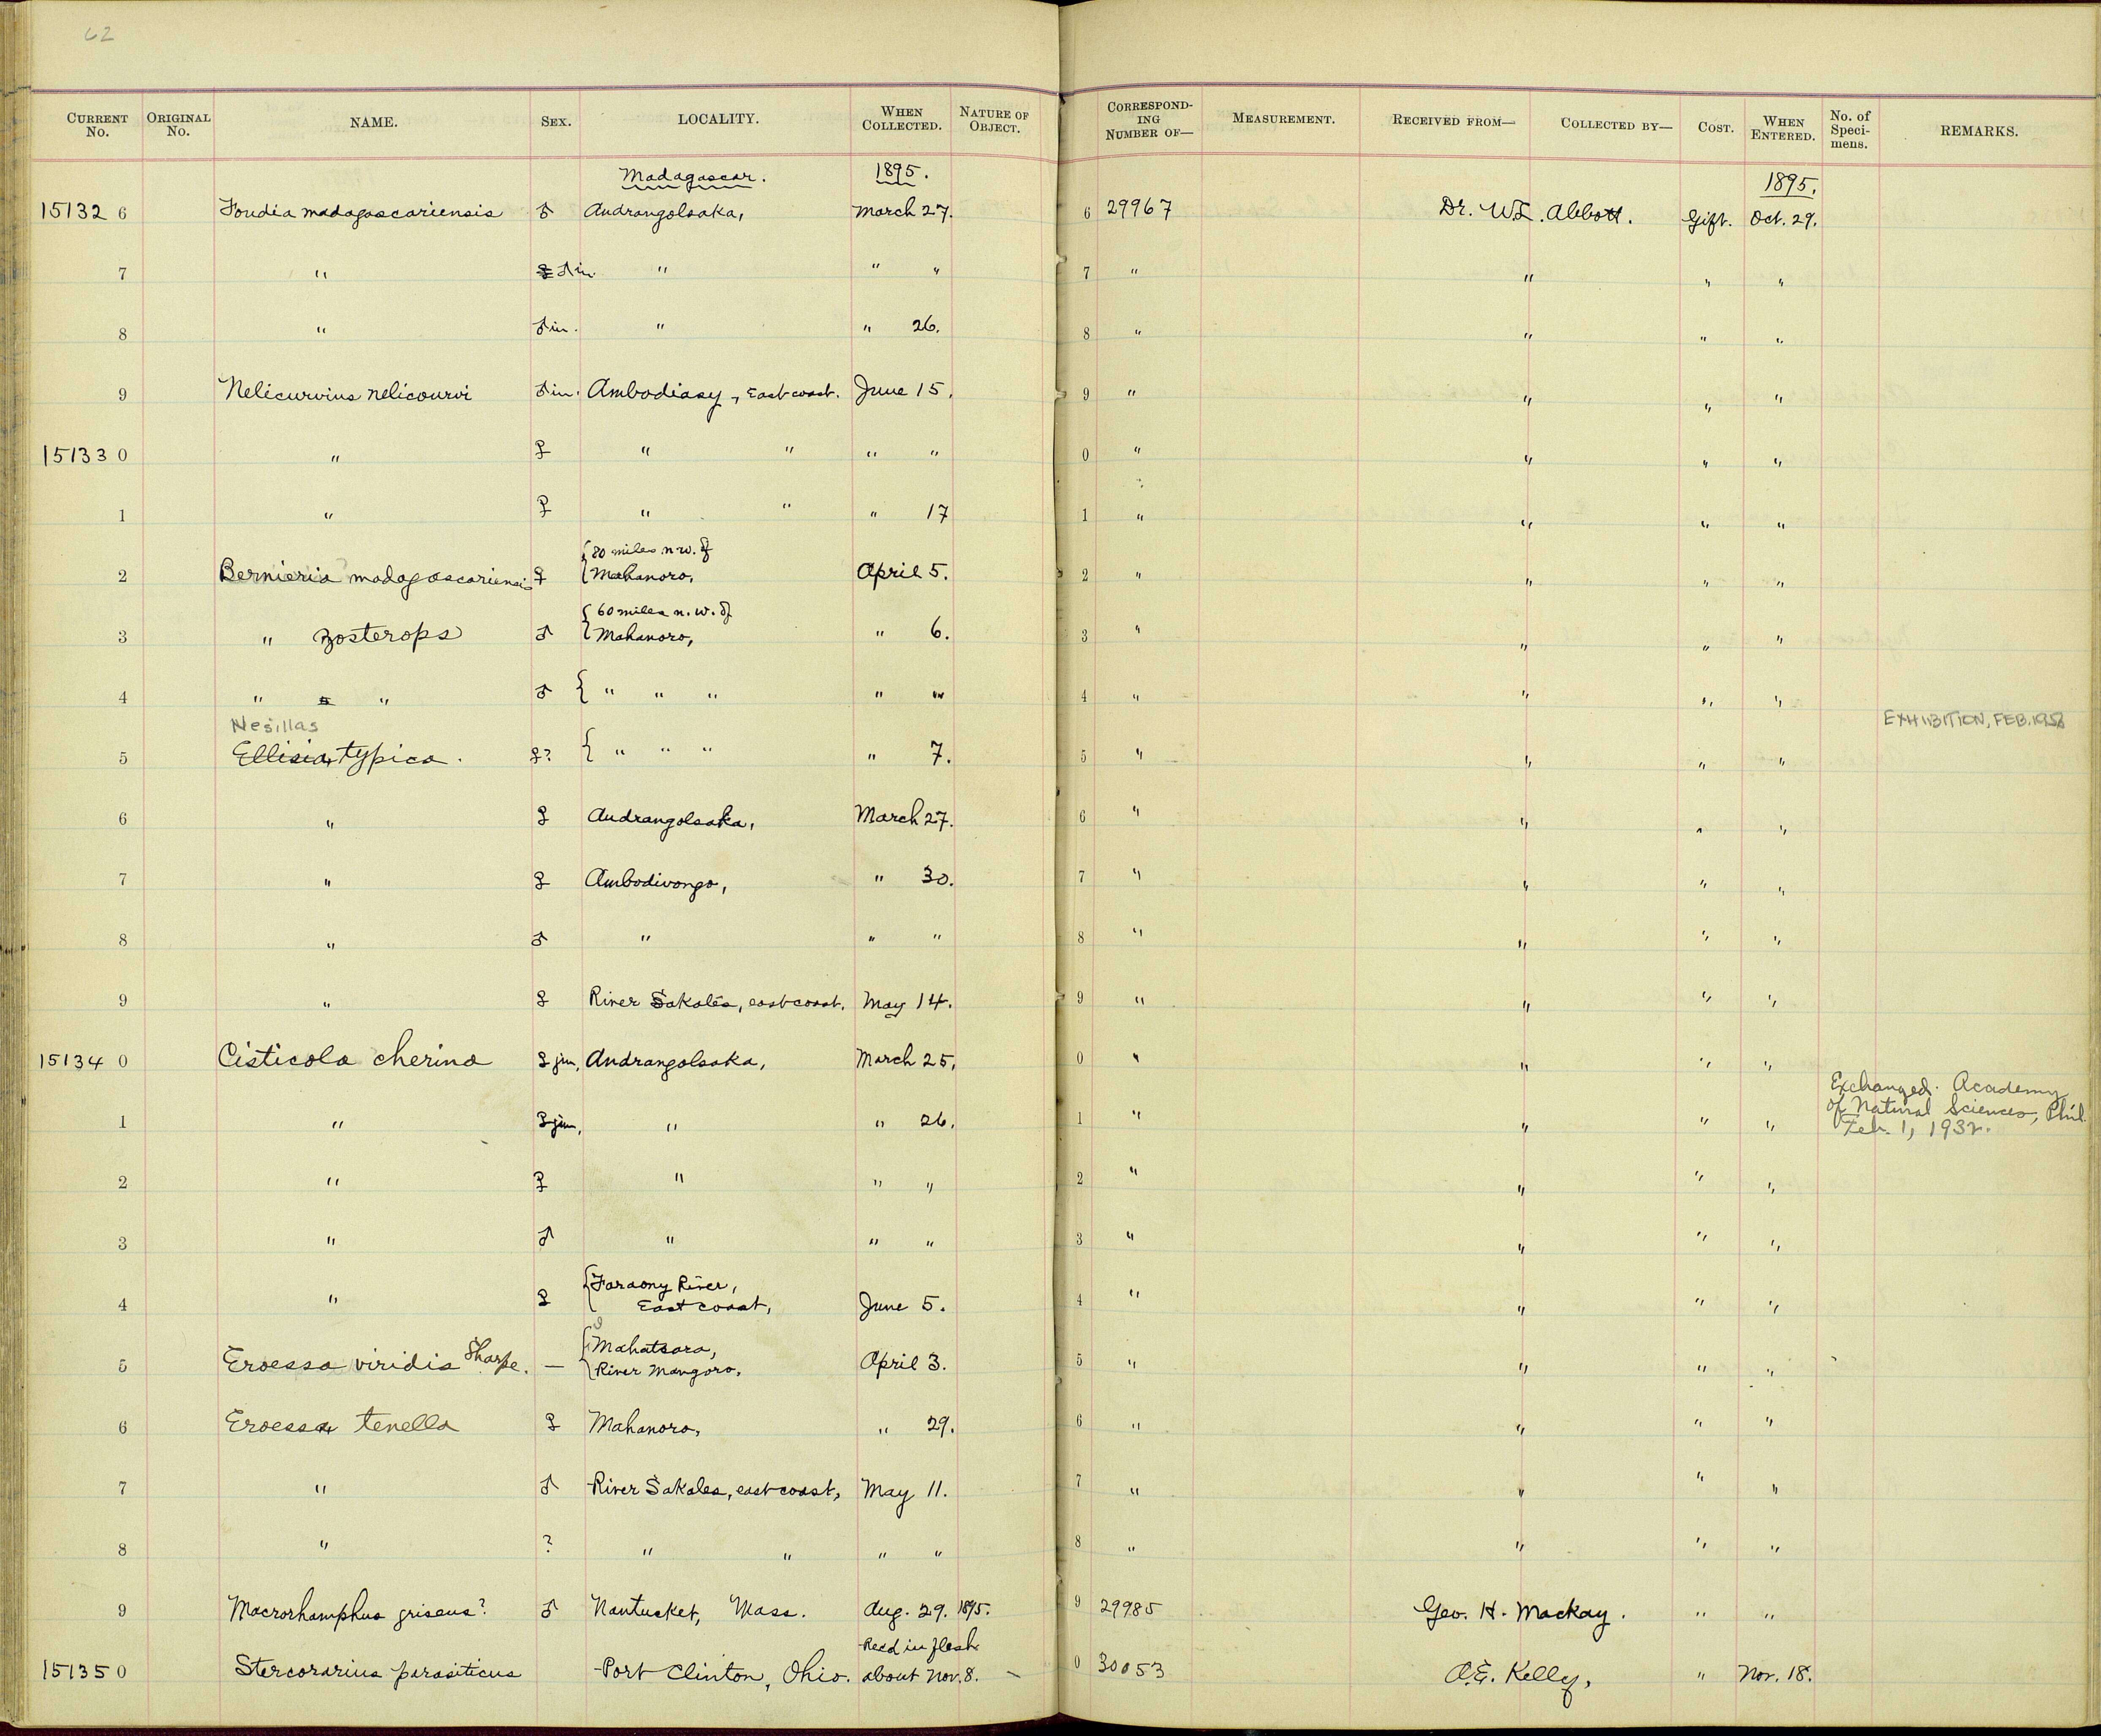 62
CURRENT No. ORIGINAL No. NAME. SEX. LOCALITY. WHEN COLLECTED. NATURE OF OBJECT. CORRESPONDING NUMBER OF— MEASUREMENT. RECEIVED FROM— COLLECTED BY— COST. WHEN ENTERED. No. of Specimens. REMARKS.
Madagascar. 1895. 1895.
15132 6 Foudia madagascariensis ♂ Andrangoloaka, March 27. 6 29967 Dr. W.L. Abbott. Gift. Oct. 29.
7 " ♂ im. " " " 7 " " " "
8 " ♂ im. " " 26. 8 " " " "
9 Nelicurvius nelicourvi ♂ im. Ambodiasy, East coast. June 15. 9 " " " "
15133 0 " ♀ " " " " 0 " " " "
1 " ♀ " " " 17 1 " " " "
2 Bernieria madagascariensis ♀ {80 miles n.w. of Mahanoro, April 5. 2 " " " "
3 " zosterops ♂ {60 miles n.w. of Mahanoro, " 6. 3 " " " "
4 " " ♂ { " " " " " 4 " " " "
Nesillas EXHIBITION, FEB. 1958
5 Ellisia typica. ♀? { " " " " 7. 5 " " " "
6 " ♀ Andrangoloaka, March 27. 6 " " " "
7 " ♀ Ambodivongo, " 30. 7 " " " "
8 " ♂ " " " 8 " " " "
9 " ♀ River Sakales, east coast. May 14. 9 " " " "
15134 0 Cisticola cherina ♀ jun, Andrangoloaka, March 25, 0 " " " "
1 " ♀ jun, " " 26. 1 " " " " Exchanged. Academy of Natural Sciences, Phil. Feb. 1, 1932.
2 " ♀ " " " 2 " " " "
3 " ♂ " " " 3 " " " "
4 " ♀ {Faraony River, East coast, June 5. 4 " " " "
5 Eroessa viridis Sharpe. — {Mahatsara, River Mangoro. April 3. 5 " " " "
6 Eroessa tenella ♀ Mahanoro, " 29. 6 " " " "
7 " ♂ River Sakales, east coast, May 11. 7 " " " "
8 " ? " " " " 8 " " " "
9 Macrorhamphus griseus? ♂ Nantucket, Mass. Aug. 29. 1895. 9 29985 Geo. H. Mackay. " "
Recd in flesh
15135 0 Stercorarius parasiticus Port Clinton, Ohio. about Nov. 8. — 0 30053 A.E. Kelly, " Nov. 18.